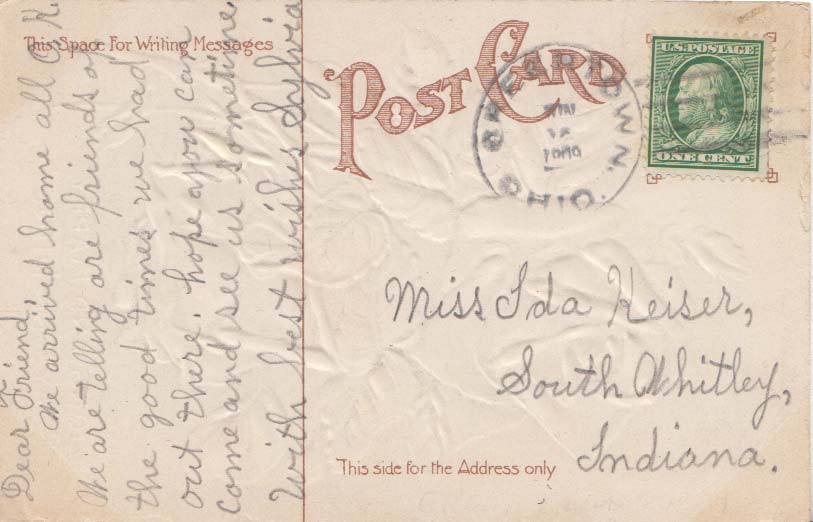 This Space For Writing Messages
POST CARD
U.S. POSTAGE
ONE CENT
OHIO.
Dear Friend,
We arrived home all O.K.
We are telling are friends of
the good times we had
out there. hope you can
come and see us sometime
With best wishes Sylvia
Miss Ida Keiser,
South Whitley,
Indiana.
This side for the Address only